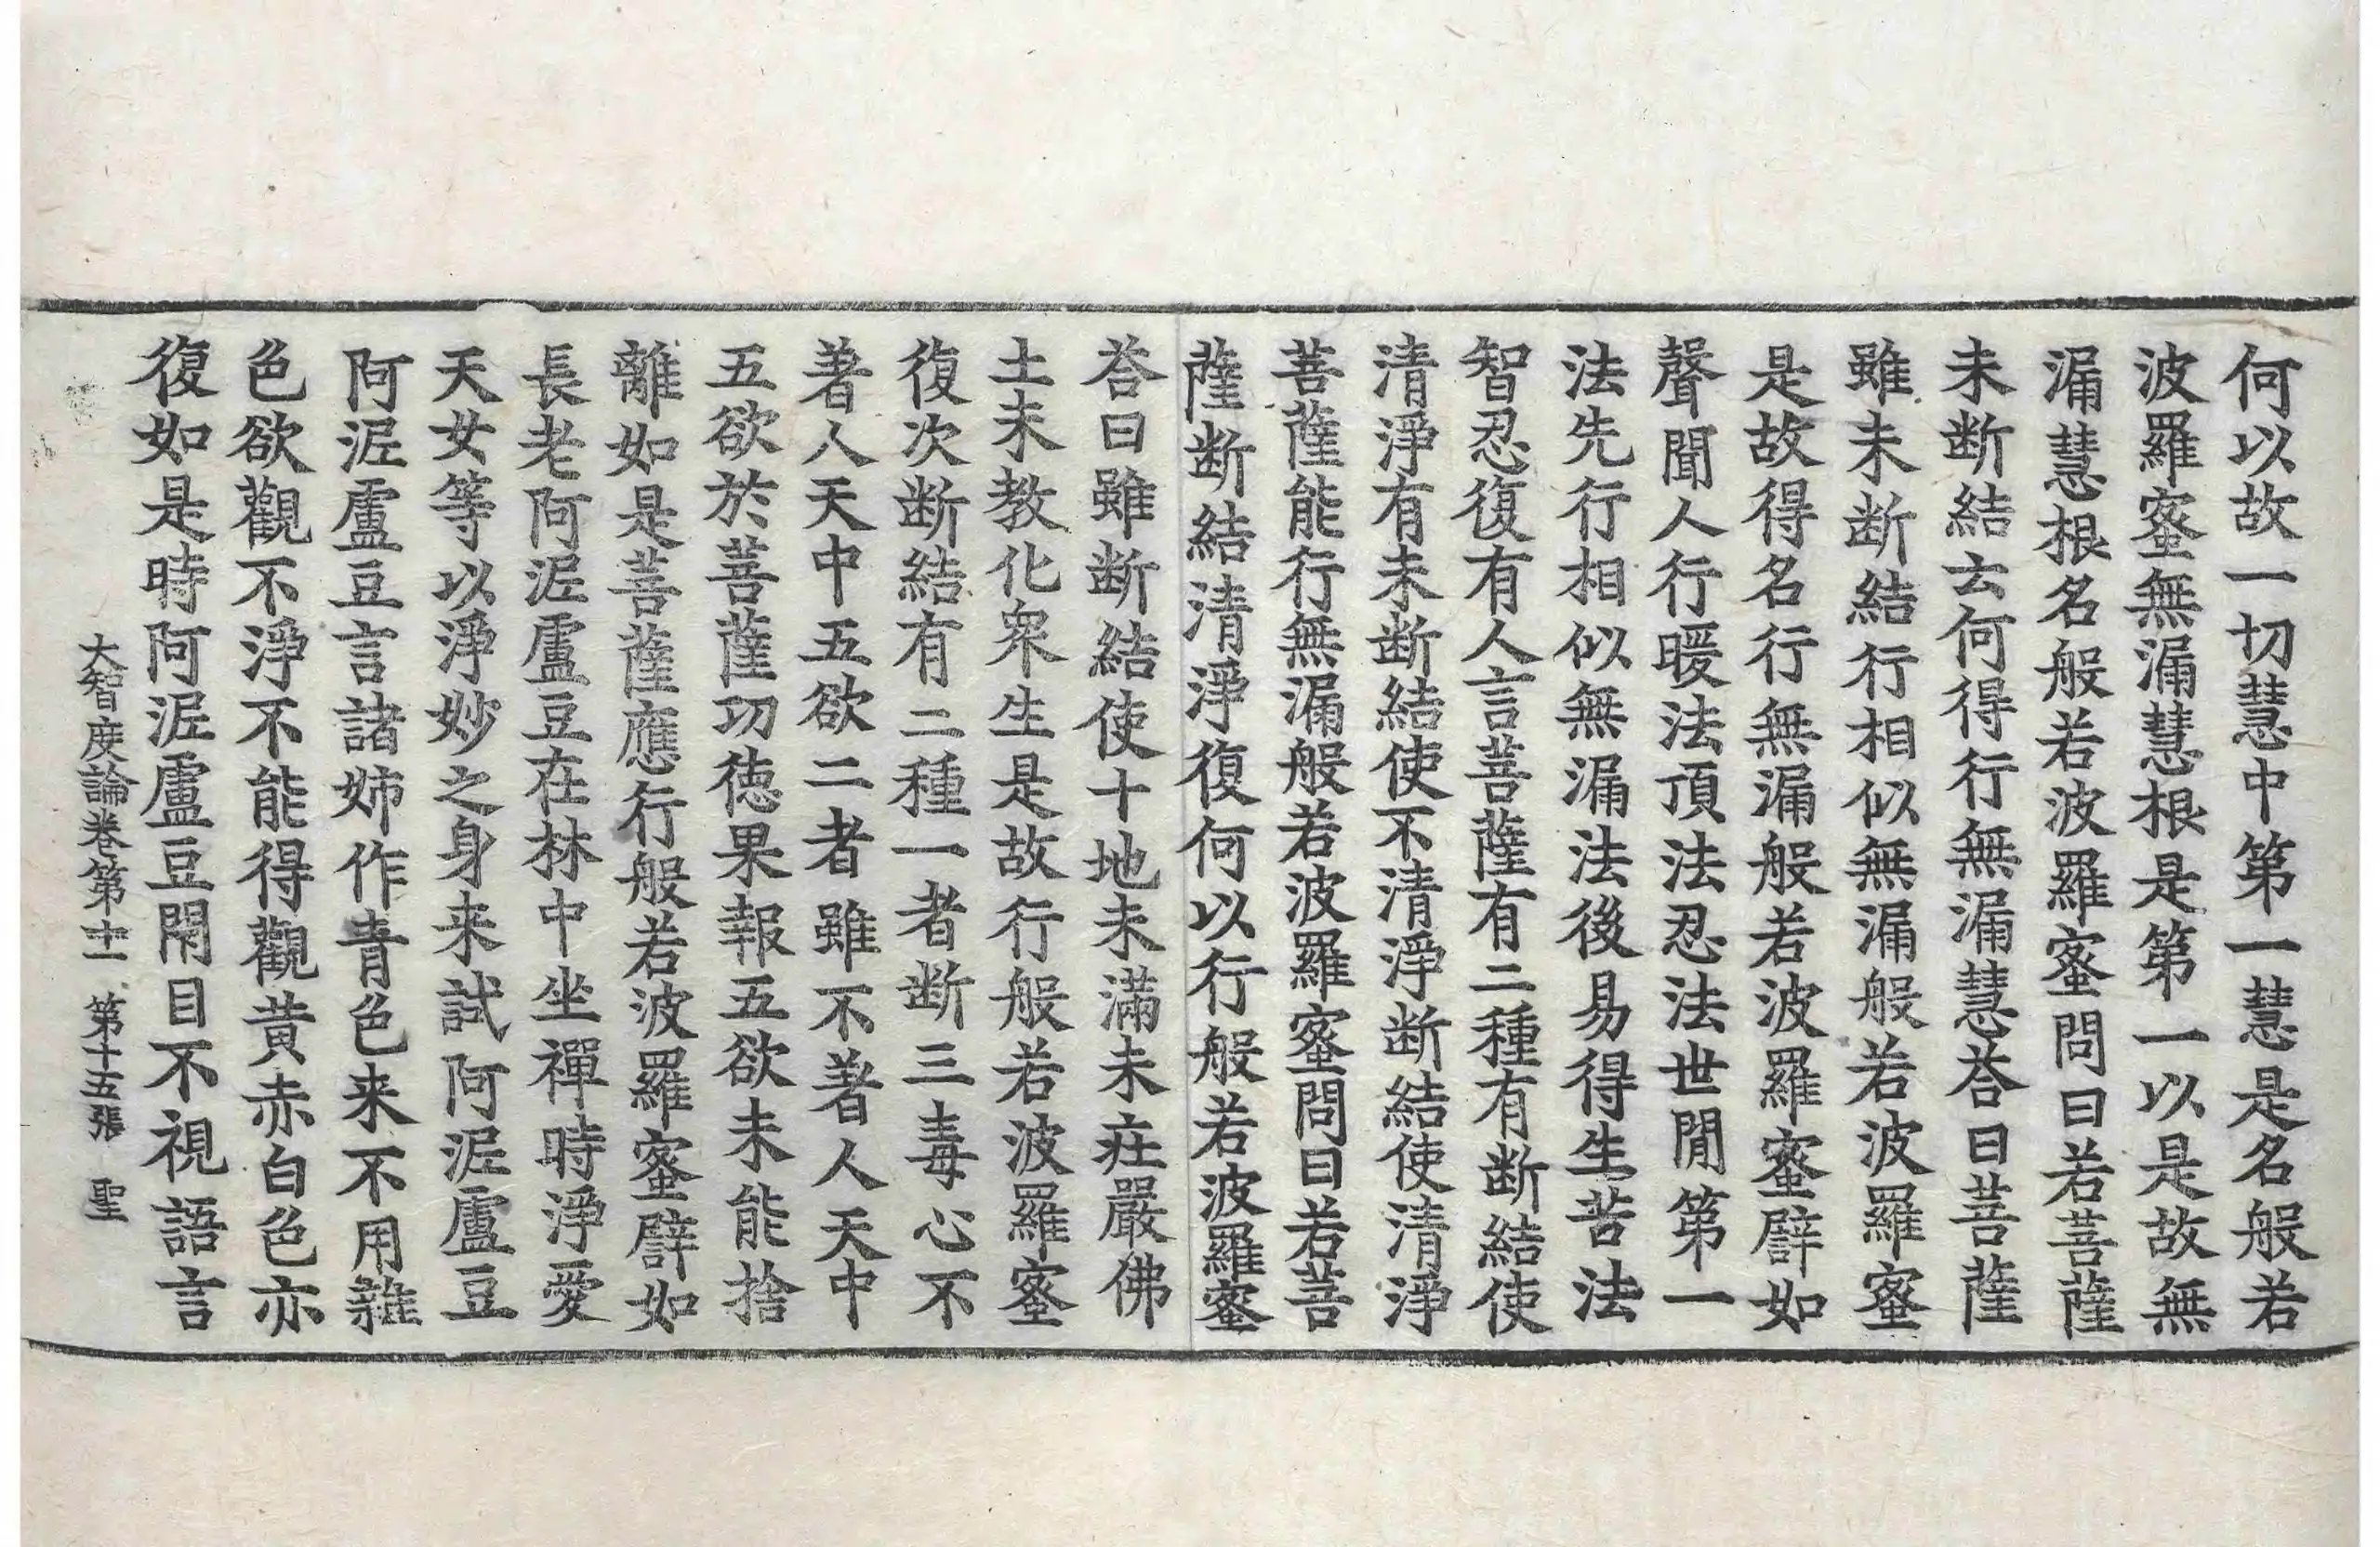 何以故一切慧中第一慧是名般若
波羅蜜無漏慧根是第一以是故無
漏慧根名般若波羅蜜問曰若菩薩
未断結云何得行無漏慧荅曰菩薩
雖未断結行相似無漏般若波羅蜜
是故得名行無漏般若波羅蜜譬如
聲聞人行暖法頂法忍法世閒第一
法先行相似無漏法後易得生苦法
智忍復有人言菩薩有二種有断結使
清淨有未断結使不清淨断結使清淨
菩薩能行無漏般若波羅蜜問曰若菩
薩断結清淨復何以行般若波羅蜜
荅曰雖断結使十地未滿未莊嚴佛
土未教化衆生是故行般若波羅蜜
復次断結有二種一者断三毒心不
著人天中五欲二者雖不著人天中
五欲於菩薩功徳果報五欲未能捨
離如是菩薩應行般若波羅蜜譬如
長老阿泥盧豆在林中坐禪時淨愛
天女等以淨妙之身来試阿泥盧豆
阿泥盧豆言諸姉作青色来不用雜
色欲觀不淨不能得觀黃赤白色亦
復如是時阿泥盧豆閇目不視語言
大智度論卷第十一 第十五張 聖